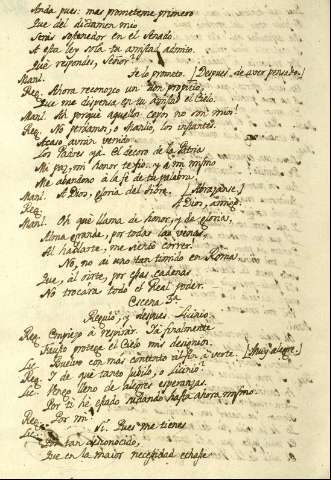 Anda pues: mas prometeme primero
Que del dictamen mio
Serás sostenedor en el Senado.
A esta ley sola tu amistad admito.
Què respondes, Señor?
Manl. Se lo prometo. [Despues de aver pensado.]
Reg. Ahora reconozco un don propicio,
Que me dispensa en tu amistad el Cielo.
Manl. Ah porquè aquellos ceyos no son mios!
Reg. No perdamos, o Manlio, los instantes.
Acaso avràn venido
Los Padres ya. El decoro de la Patria
Mi paz, mi honor te fio. y à mi mismo
Me abandono à la fè de tu palabra.
Manl. A Dios, gloria del Tibre. [Abrazanse.]
Reg. A Dios, amigo.
Manl. Oh què llama de honor, y de gloria,
Alma grande, por todas las venas,
Al hablarte, me siento correr!
No, no ai uno tan timido en Roma
Que, al oirte, por essas cadenas
No trocara todo el Real poder.
Escena 3ª
Regulo, y despues Licinio.
Reg. Empiezo à respirar. Ya finalmente
Fausto protege el Cielo mis designios.
Lic. Buelvo con mas contento al fin à verte. [Muy alegre.]
Reg. I de què tanto jubilo, o Licinio?
Lic. Vengo lleno de alegres esperanzas.
Por ti he estado sudando hasta ahora mismo.
Reg. Por mi?
Lic. Sì. Pues me tienes
Por tan desconocido,
Que en la maior necessidad echasse